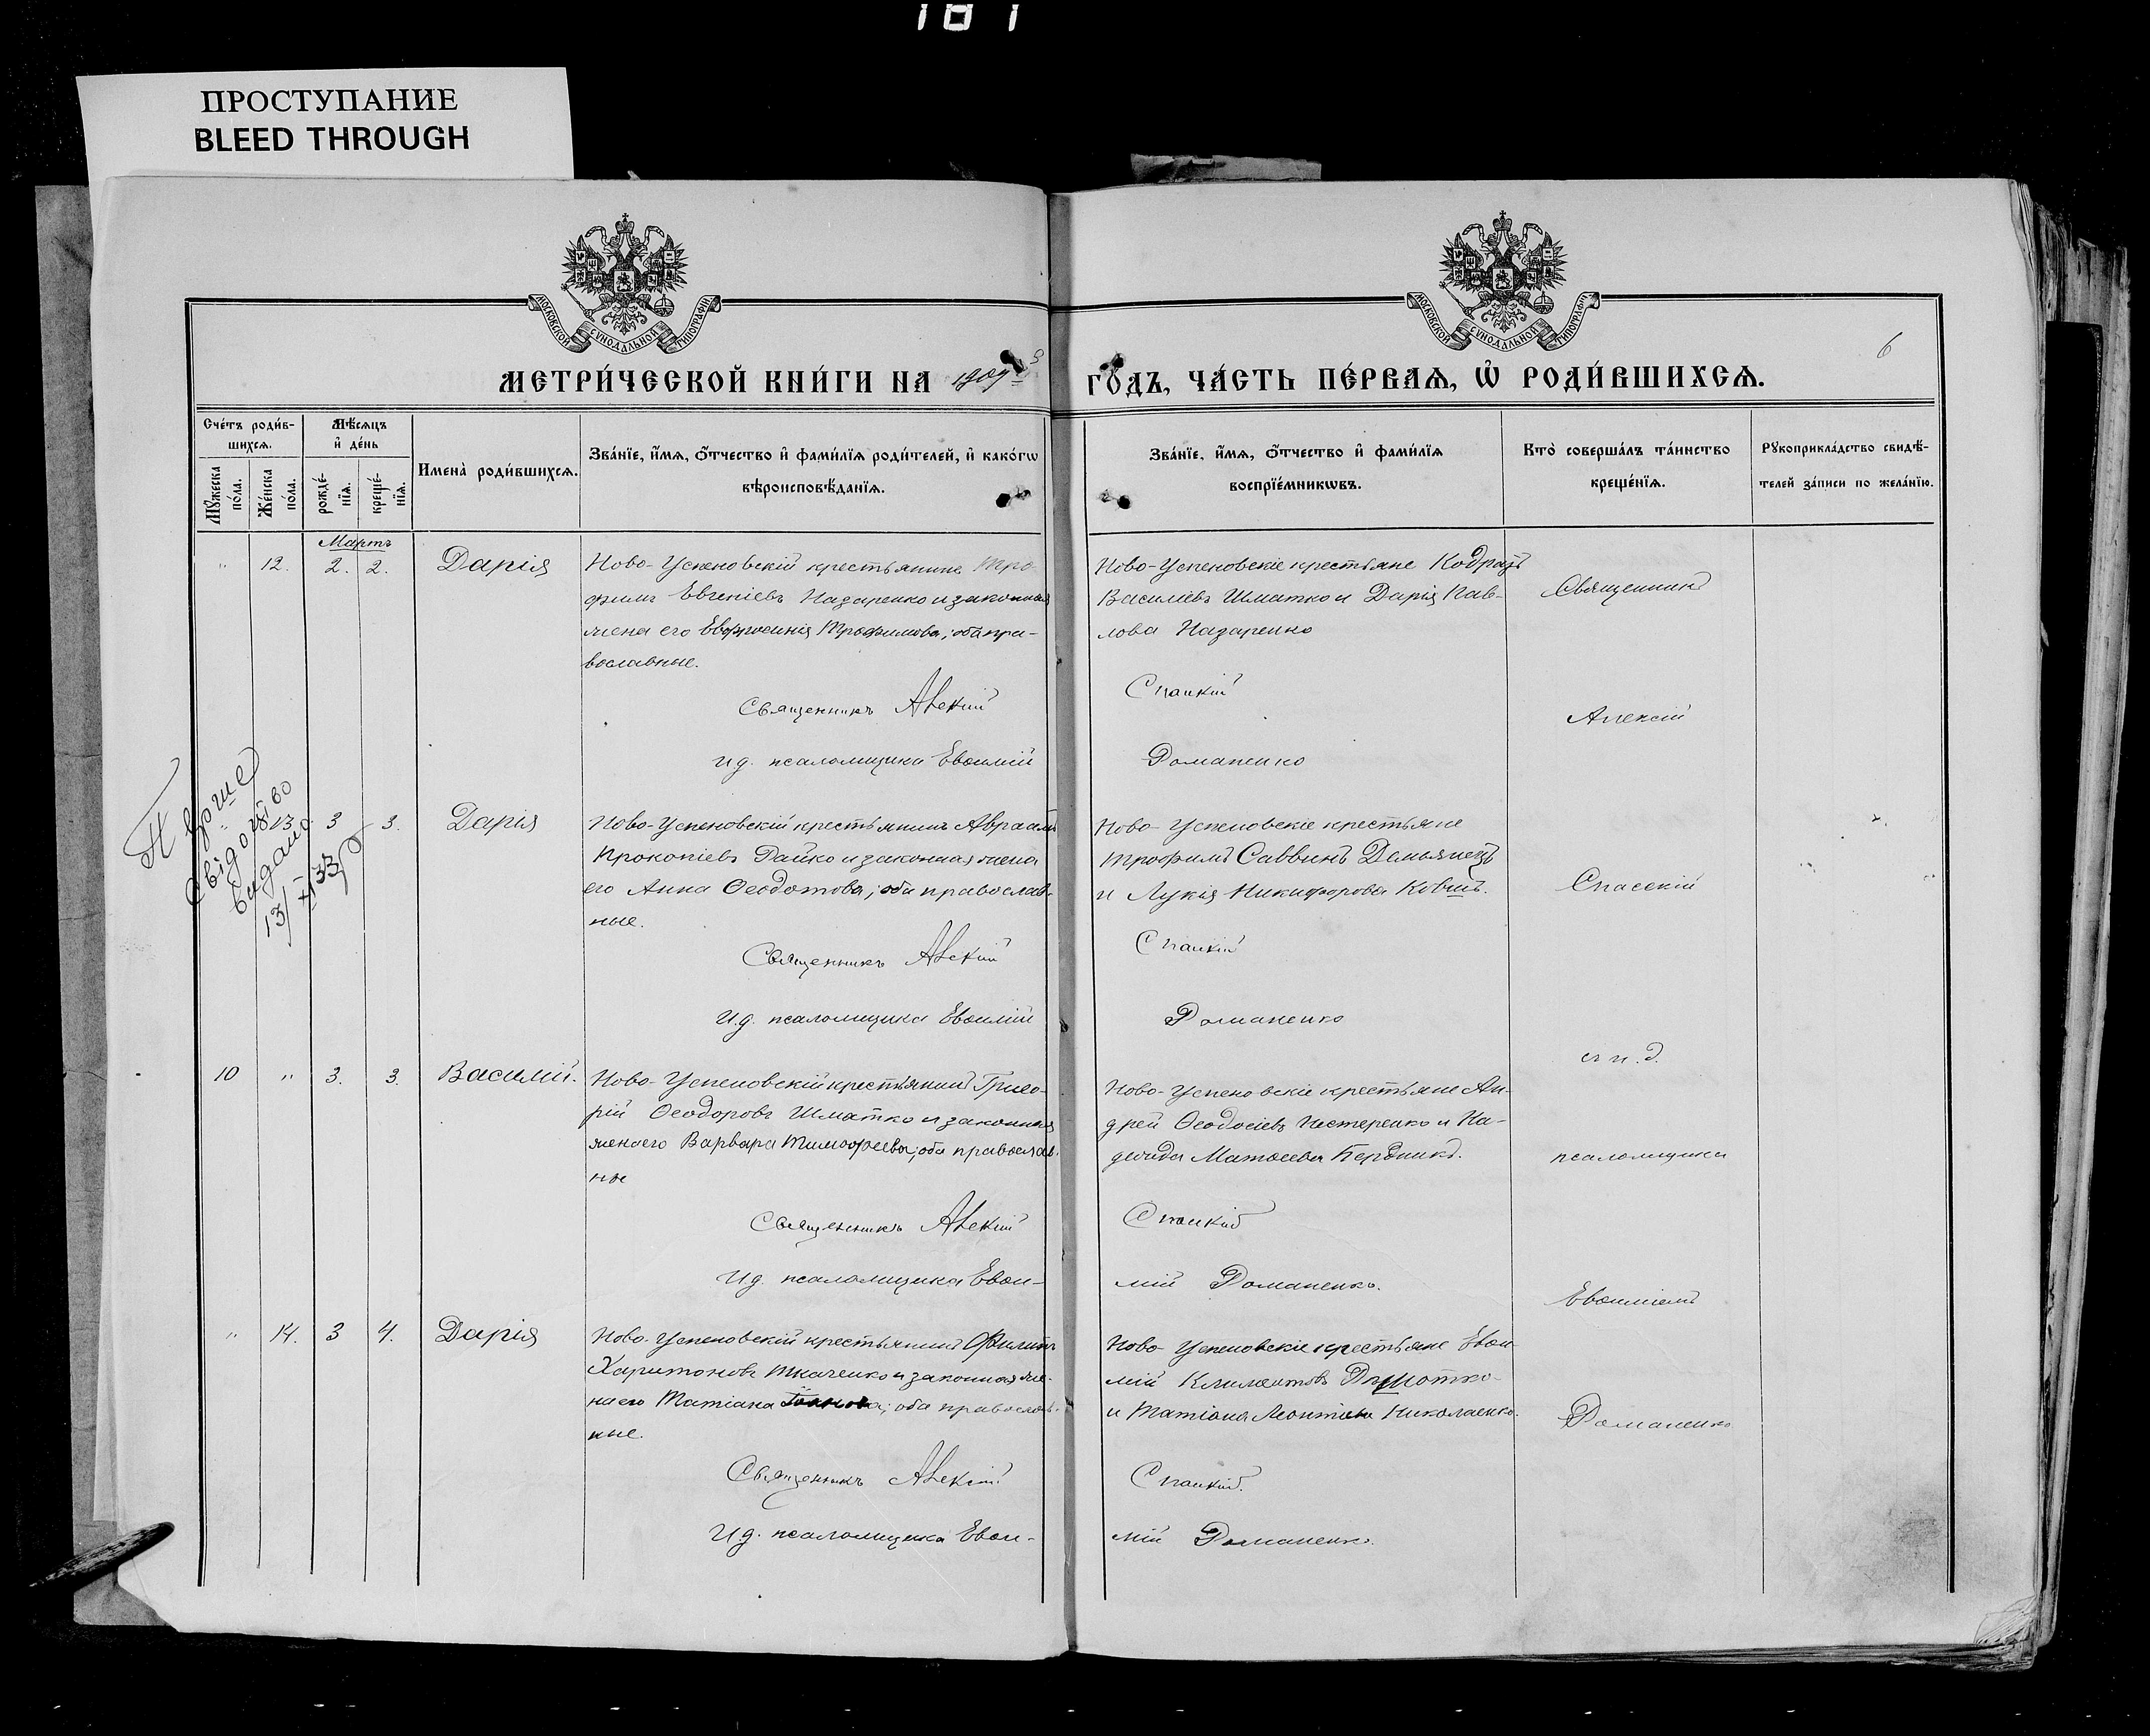 181
ПРОСТУПАНИЕ
BLEED THROUGH
МОСКОВСКОЙ СУНОДАЛЬНОЙ ТИПОГРАФІИ
МОСКОВСКОЙ СУНОДАЛЬНОЙ ТИПОГРАФІИ
6
МЕТРИ́ЧЕСКОЙ КНИ́ГИ НА 1909 ГО́ДЪ, ЧА́СТЬ ПЕ́РВАѦ, Ѡ҆ РОДИ́ВШИХСѦ.
Сче́тъ роди́в-
шихсѧ.
Мѣ́сѧцъ
и҆ де́нь
Мꙋ́жеска
по́ла.
Же́нска
по́ла.
рожде́-
нїѧ.
креще́-
нїѧ.
Имена̀ роди́вшихсѧ.
Зва́нїе, и҆́мѧ, ѻ҆́тчество и҆ фами́лїѧ роди́телей, и҆ како́гѡ
вѣроисповѣ́данїѧ.
Зва́нїе, и҆́мѧ, ѻ҆́тчество и҆ фами́лїѧ
воспрїе́мникѡвъ.
Кто̀ соверша́лъ та́инство
креще́нїѧ.
Рꙋкоприкла́дство свидѣ́-
телей за́писи по жела́нїю.
Мартъ
" 12. 2. 2. Дарія
Ново-Успеновскій крестьянинъ Тро-
фимъ Евгеніевъ Назаренко и законная
жена его Евфросинія Трофимова; оба пра-
вославные.
Священникъ Алексій
И д. псаломщика Евѳимій
Ново-Успеновскіе крестьяне Кодратъ
Василіевъ Шматко и Дарія Пав-
лова Назаренко
Спаскій
Доманенко
Священникъ
Алексій
Перше
свідоцтво
видано
13/X 33 р
" 13. 3 3. Дарія
Ново-Успеновскій крестьянинъ Авраамъ
Прокопіевъ Дайко и законная жена
его Анна Ѳеодотова; оба православ-
ные.
Священникъ Алексій
И.д. псаломщика Евѳимій
Ново-Успеновскіе крестьяне
Трофимъ Саввинъ Демьянецъ
и Лукія Никифорова Ковшъ.
Спаскій
Доманенко
Спасскій
съ и.д.
10 " 3. 3. Василій.
Ново-Успеновскій крестьянинъ Григо-
рій Ѳеодоровъ Шматко и законная
жена его Варвара Тимоѳеева; оба православ-
ные
Священникъ Алексій
И д. псаломщика Евѳи-
Ново-Успеновскіе крестьяне Ан-
дрей Ѳеодосіевъ Нестеренко и На-
дежда Матѳеева Бердникъ.
Спаскій
мій Доманенко.
псаломщика
Евѳиміемъ
" 14. 3 4. Дарія
Ново-Успеновскій крестьянинъ Филиппъ
Харитоновъ Ткаченко и законная же-
на его Татіана; оба православ-
ные.
Священникъ Алексій
И д. псаломщика Евѳи-
Ново-Успеновскіе крестьяне Евѳи-
мій Климентовъ
и Татіана Леонтіева Николаенко.
Спаскій.
мій Доманенко.
Доманенко